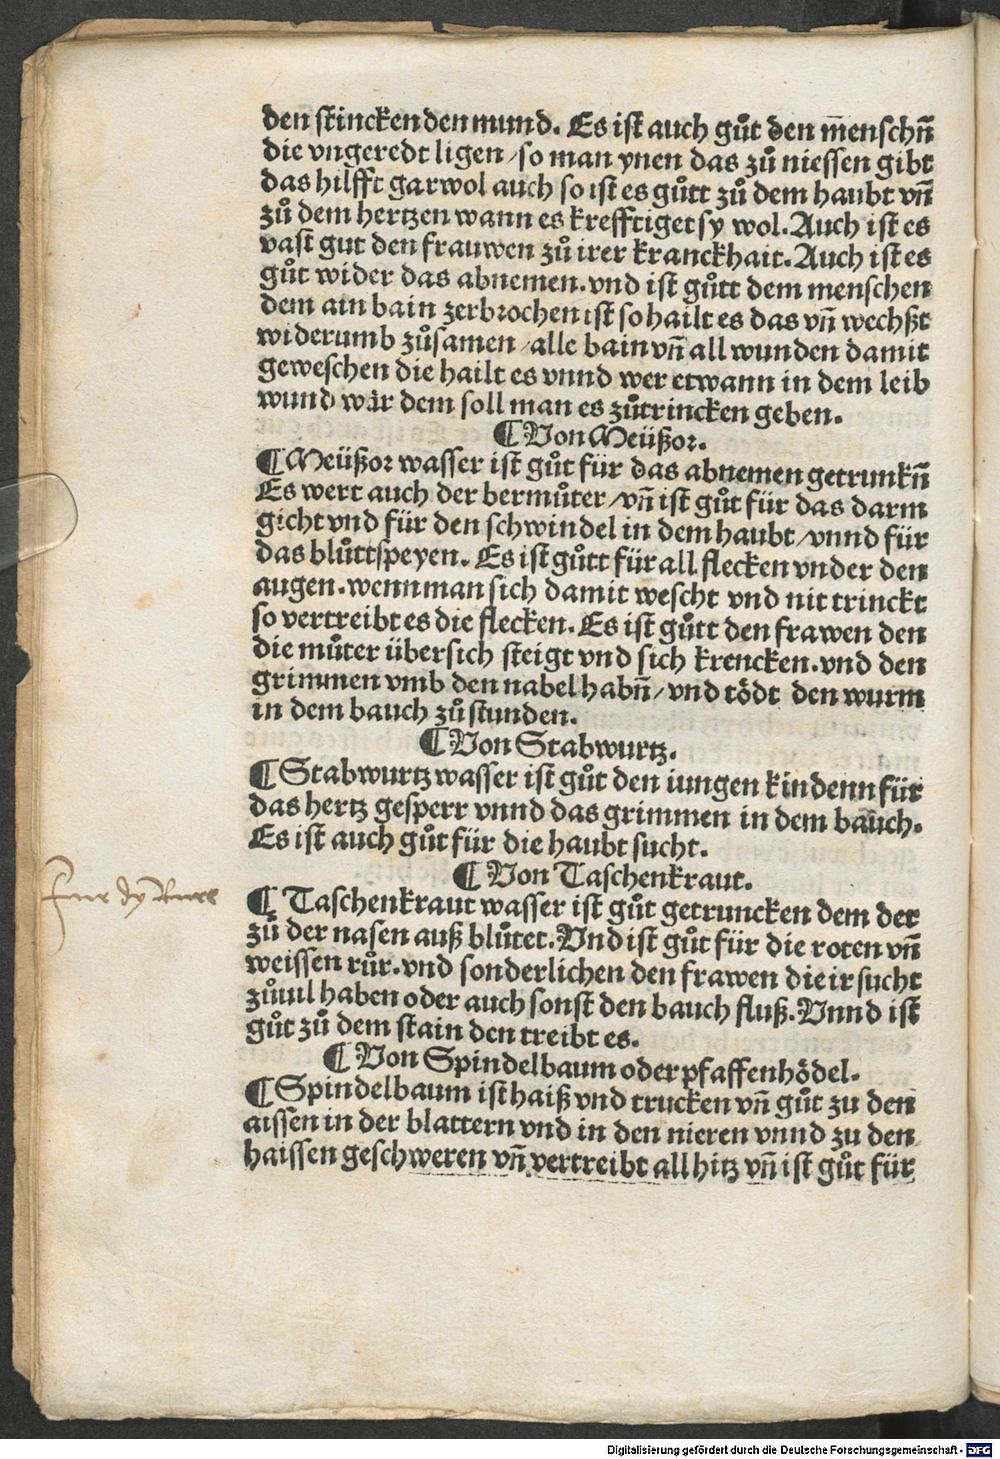 den stinckenden mund. Es ist auch gůt den m̄enschn̄
die vngeredt ligen / so man ynen das zů niessen gibt
das hilfft gar wol auch so ist es gůtt zů dem haubt vn̄
zů dem hertzen wann es krefftiget sy wol. Auch ist es
vast gut den frauwen zů irer kranckhait. Auch ist es
gůt wider das abnemen. vnd ist gůtt dem menschen
dem ain bain zerbrochen ist so hailt es das vn̄ wechßt
widerumb zůsamen / alle bain vn̄ all wunden damit
geweschen die hailt es vnnd wer etwann in dem leib
wund wär dem soll man es zůtrincken geben.
¶ Von Meüßor.
¶ Meüßor wasser ist gůt für das abnemen getrunkn̄
Es wert auch der bermůter / vn̄ ist gůt für das darm
gicht vnd für den schwindel in dem haubt / vnnd für
das blůttspeyen. Es ist gůtt für all flecken vnder den
augen. wenn man sich damit wescht vnd nit trinckt
so vertreibt es die flecken. Es ist gůtt den frawen den
die můter übersich steigt vnd sich krencken. vnd den
grimmen vmb den nabel habn̄ / vnd tödt den wurm
in dem bauch zů stunden.
¶ Von Stabwurtz.
¶ Stabwurtz wasser ist gůt den iungen kindenn für
das hertz gesperr vnnd das grimmen in dem bauch.
Es ist auch gůt für die haubt sucht.
¶ Von Taschenkraut.
fur dy Rure
¶ Taschenkraut wasser ist gůt getruncken dem der
zů der nasen auß blůtet. Vnd ist gůt für die roten vn̄
weissen růr. vnd sonderlichen den frawen die ir sucht
zůuil haben oder auch sonst den bauch fluß. Vnnd ist
gůt zů dem stain den treibt es.
¶ Von Spindelbaum oder pfaffenhödel.
¶ Spindelbaum ist haiß vnd trucken vn̄ gůt zu den
aissen in der blattern vnd in den nieren vnnd zu den
haissen geschweren vn̄ vertreibt all hitz vn̄ ist gůt für
Digitalisierung gefördert durch die Deutsche Forschungsgemeinschaft - DFG